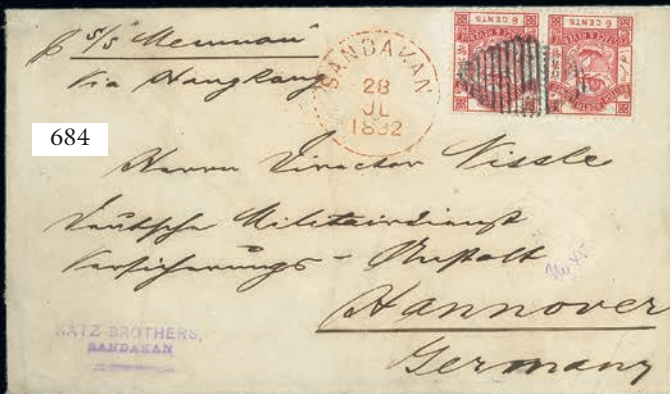 p s/s "Memnon"
Via Hongkong
SANDAKAN
28
JL
1892
6 CENTS
6 CENTS
684
Herrn Director Nissle
Deutsche Militairdienst
Versicherungs - Anstalt
Hannover
Germany
KATZ BROTHERS,
SANDAKAN